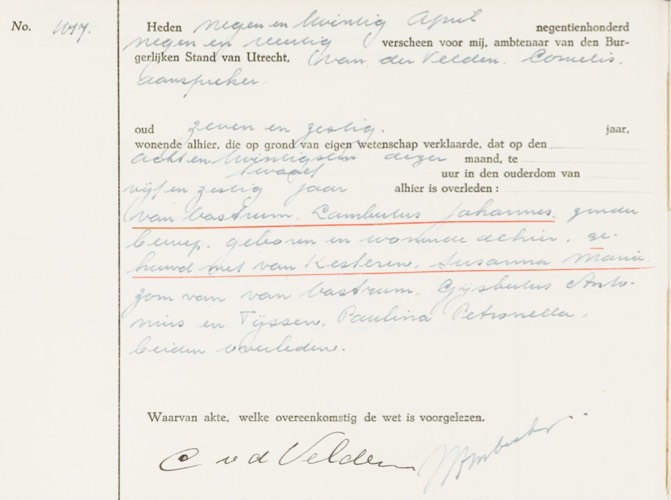 No. 1077.
Heden negen en twintig April negentienhonderd
negen en veertig verscheen voor mij, ambtenaar van den Bur-
gerlijken Stand van Utrecht, van der Velden. Cornelis.
aanspreker.
oud zeven en zestig. jaar,
wonende alhier, die op grond van eigen wetenschap verklaarde, dat op den
acht en twintigsten dezer maand, te
twaalf uur in den ouderdom van
vijf en zestig jaar alhier is overleden:
van Vastrum. Lambertus Johannes, zonder
beroep, geboren en wonende alhier, ge-
huwd met van Kesteren, Susanna Maria.
zoon van van Vastrum. Gijsbertus Anto-
nius en Tijssen, Paulina Petronella.
beiden overleden.
Waarvan akte, welke overeenkomstig de wet is voorgelezen.
C v d Velden